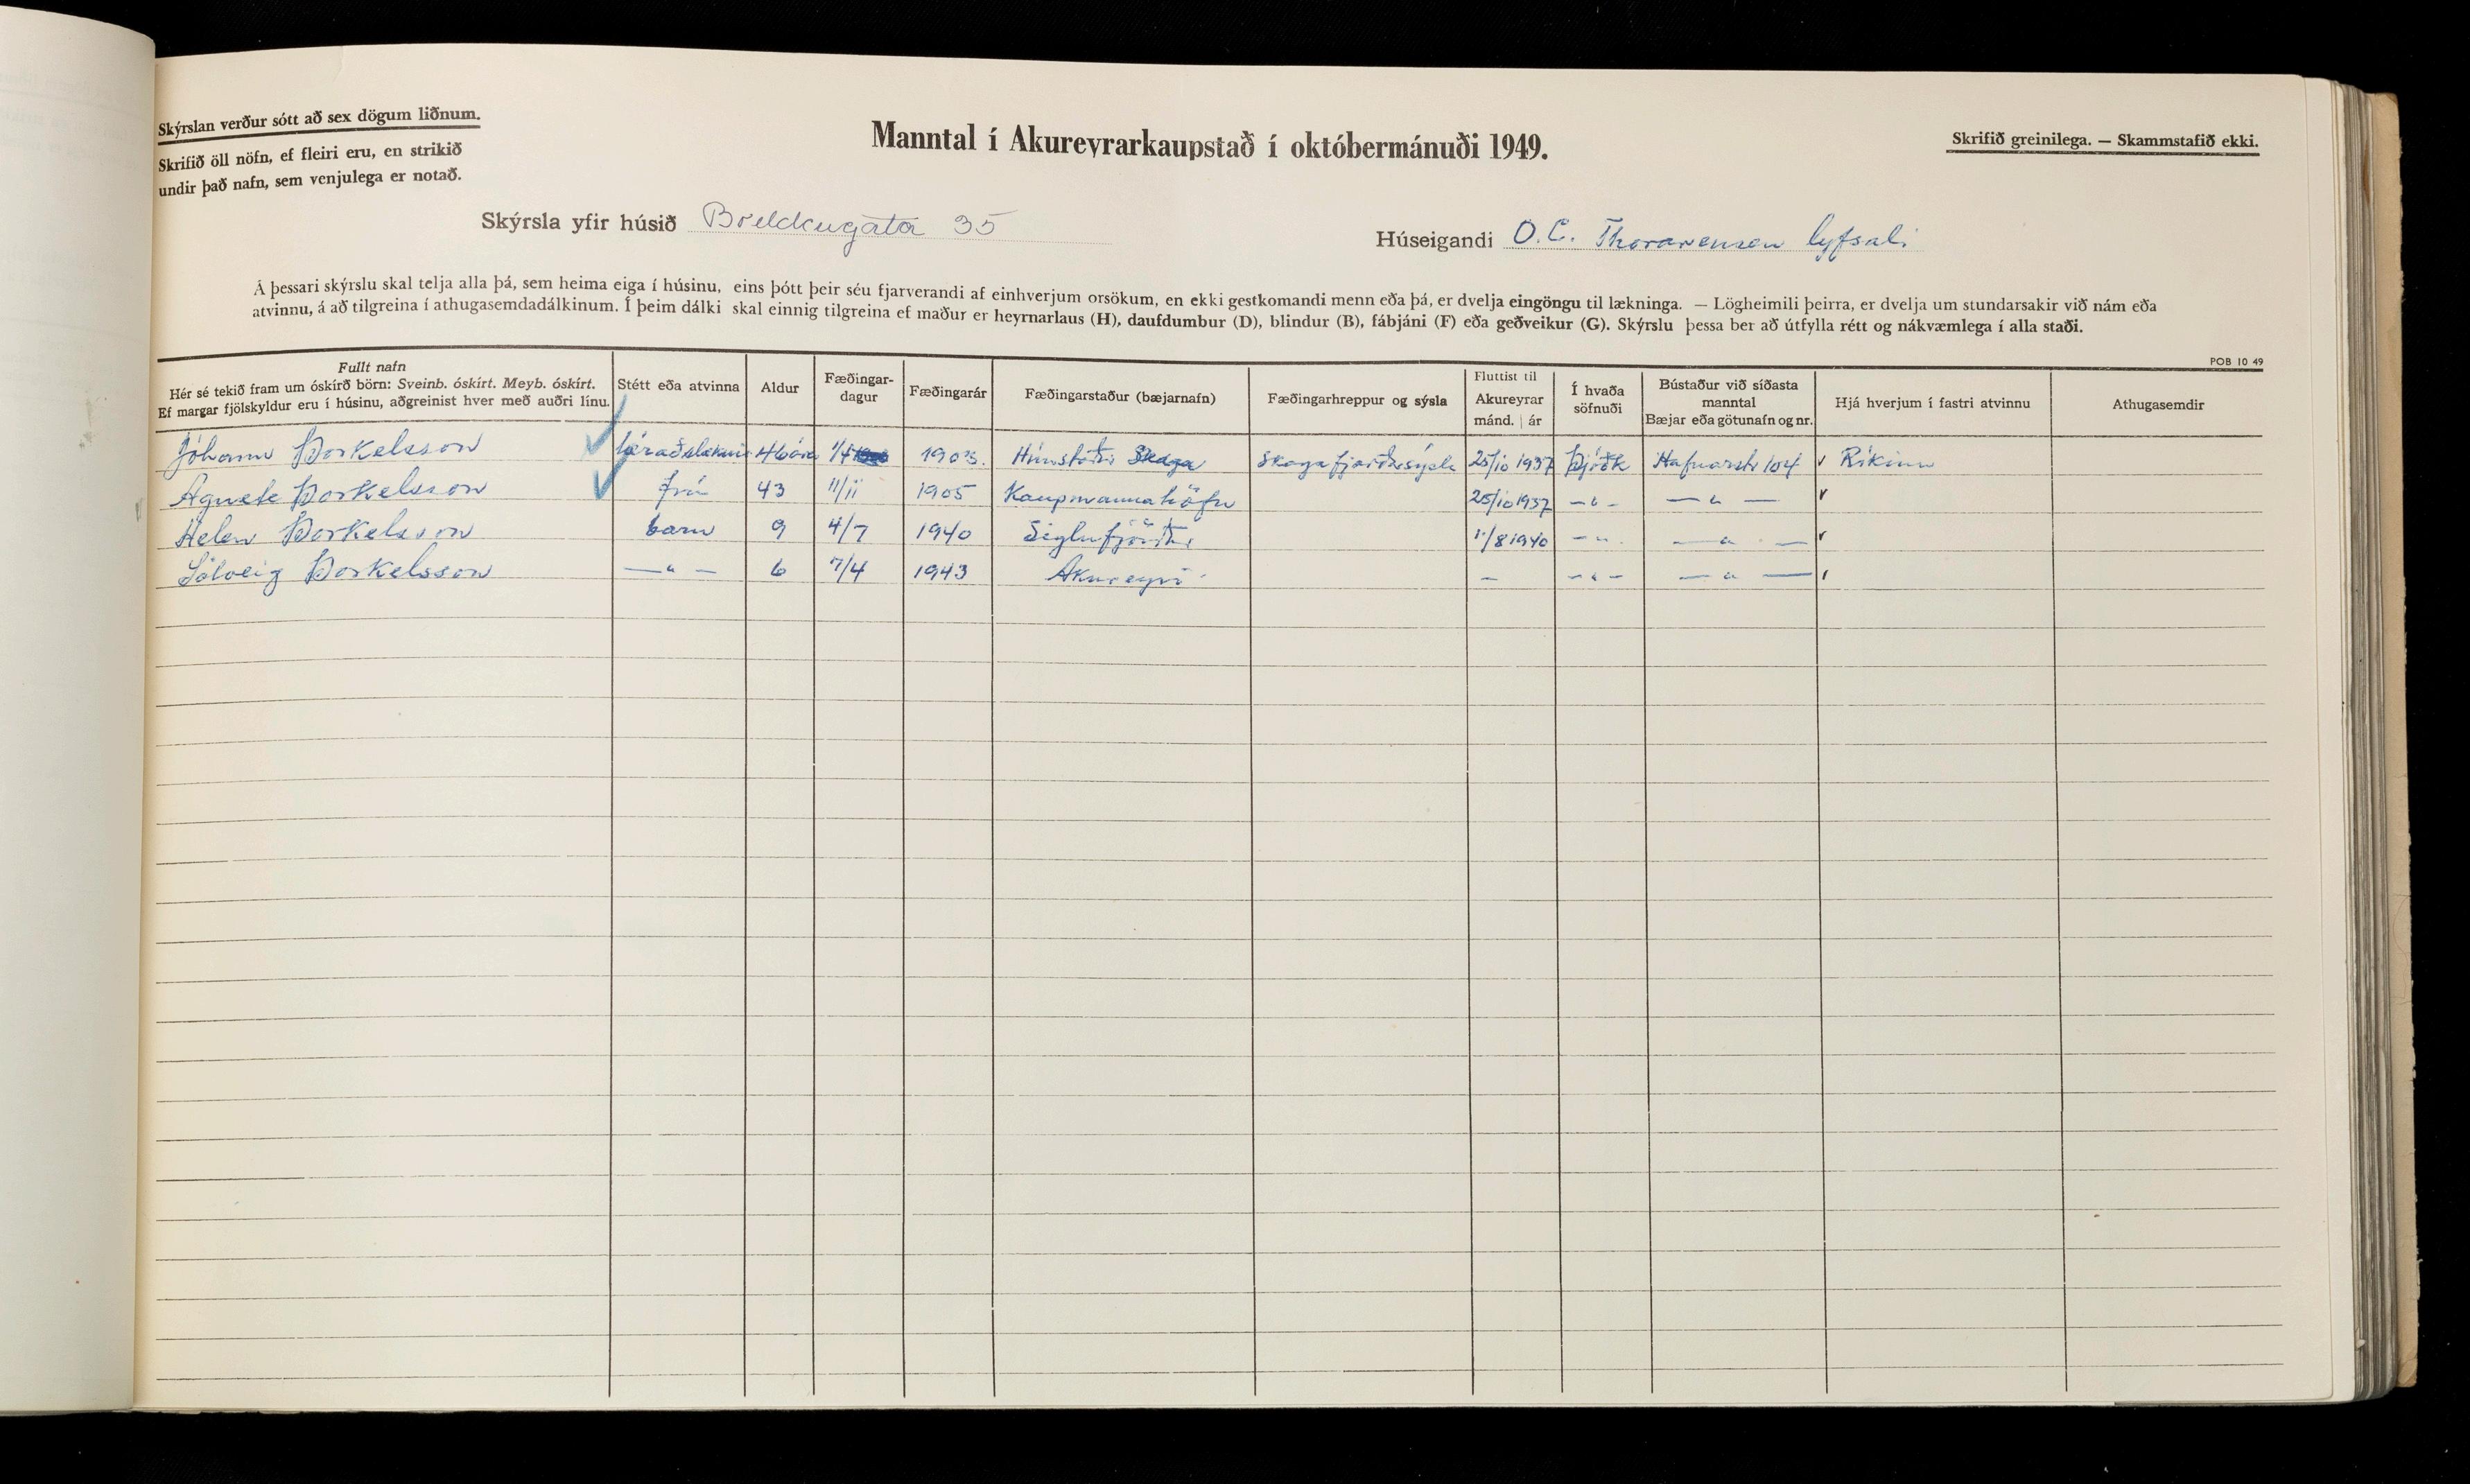 Skýrslan verður sótt að sex dögum liðnum.
Skrifið öll nöfn, ef fleiri eru, en strikið
undir það nafn, sem venjulega er notað.
Manntal í Akureyrarkaupstað í októbermánuði 1949.
Skrifið greinilega. — Skammstafið ekki.
Skýrsla yfir húsið Brekkugata 35
Húseigandi O. C. Thorarensen lyfsali
Á þessari skýrslu skal telja alla þá, sem heima eiga í húsinu, eins þótt þeir séu fjarverandi af einhverjum orsökum, en ekki gestkomandi menn eða þá, er dvelja eingöngu til lækninga. — Lögheimili þeirra, er dvelja um stundarsakir við nám eða
atvinnu, á að tilgreina í athugasemdadálkinum. Í þeim dálki skal einnig tilgreina ef maður er heyrnarlaus (H), daufdumbur (D), blindur (B), fábjáni (F) eða geðveikur (G). Skýrslu þessa ber að útfylla rétt og nákvæmlega í alla staði.
POB 10 49
Fullt nafn
Hér sé tekið fram um óskírð börn: Sveinb. óskírt. Meyb. óskírt.
Ef margar fjölskyldur eru í húsinu, aðgreinist hver með auðri línu.
Stétt eða atvinna
Aldur
Fæðingar-
dagur
Fæðingarár
Fæðingarstaður (bæjarnafn)
Fæðingarhreppur og sýsla
Fluttist til
Akureyrar
mánd. | ár
Í hvaða
söfnuði
Bústaður við síðasta
manntal
Bæjar eða götunafn og nr.
Hjá hverjum í fastri atvinnu
Athugasemdir
Jóhann Þorkelsson héraðslæknir 46 ára 1/4 1903. Skaga Skagafjarðarsýsla 25/10 1937 Þjóðk Hafnarstr 104 Ríkinu
Agnete Þorkelsson frú 43 11/11 1905 Kaupmannahöfn 25/10 1937 — " — — " —
Helen Þorkelsson barn 9 4/7 1940 Siglufjörður 11/8 1940 — " — — " —
Sólveig Þorkelsson — " — 6 7/4 1943 Akureyri — — " — — " —